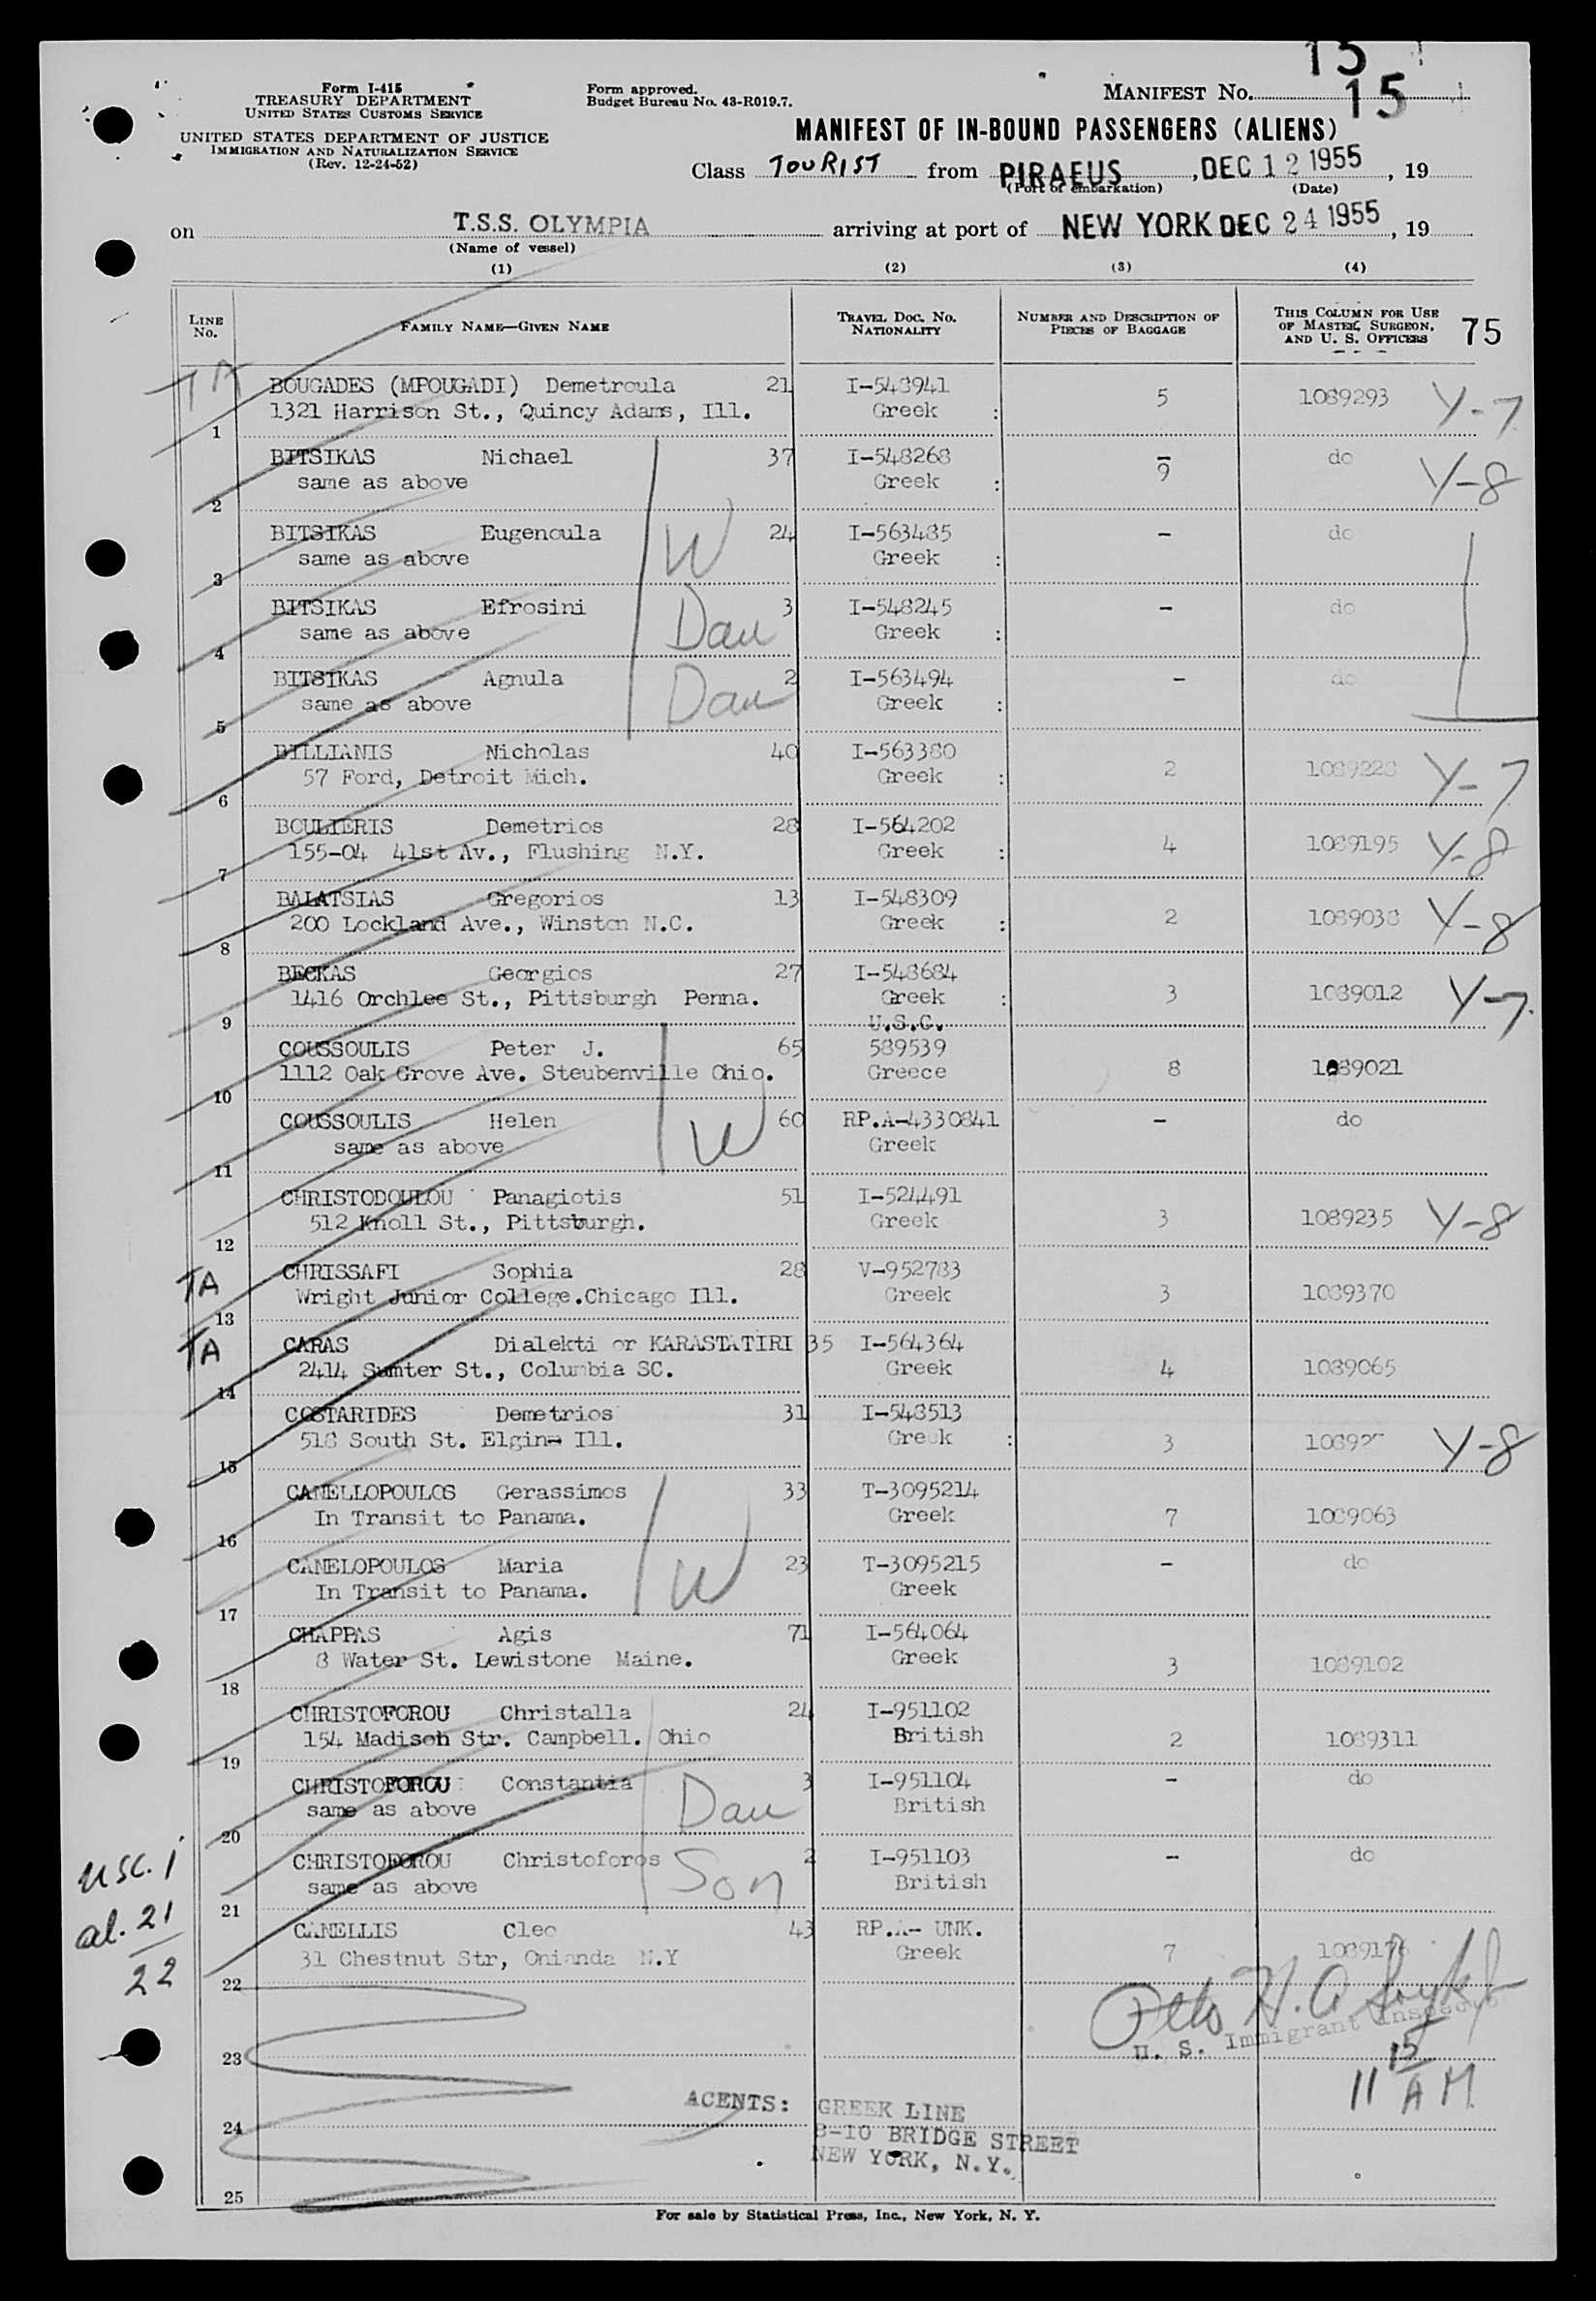 15
Form I-415
TREASURY DEPARTMENT
UNITED STATES CUSTOMS SERVICE
UNITED STATES DEPARTMENT OF JUSTICE
IMMIGRATION AND NATURALIZATION SERVICE
(Rev. 12-24-52)
Form approved.
Budget Bureau No. 43-R019.7.
MANIFEST No. 15
MANIFEST OF IN-BOUND PASSENGERS (ALIENS)
Class TOURIST from PIRAEUS, DEC 12 1955, 19
(Port of embarkation) (Date)
on T.S.S. OLYMPIA arriving at port of NEW YORK DEC 24 1955, 19
(Name of vessel)
(1) (2) (3) (4)
LINE No. FAMILY NAME—GIVEN NAME TRAVEL DOC. No. NATIONALITY NUMBER AND DESCRIPTION OF PIECES OF BAGGAGE THIS COLUMN FOR USE OF MASTER, SURGEON, AND U. S. OFFICERS 75
TA BOUGADES (MPOUGADI) Demetroula 21 I-548941 5 1089293 Y-7
1321 Harrison St., Quincy Adams, Ill. Greek :
1
BITSIKAS Nichael 37 I-548268 9 do Y-8
same as above Greek :
2
BITSIKAS Eugenoula W 24 I-563485 - do
same as above Greek :
3
BITSIKAS Efrosini Dau 3 I-548245 - do
same as above Greek :
4
BITSIKAS Agnula Dau 2 I-563494 - do
same as above Greek :
5
BILLIANIS Nicholas 40 I-563380 2 1089228 Y-7
57 Ford, Detroit Mich. Greek :
6
BOULIERIS Demetrios 28 I-564202 4 1089195 Y-8
155-04 41st Av., Flushing N.Y. Greek :
7
BALATSIAS Gregorios 13 I-548309 2 1089038 Y-8
200 Lockland Ave., Winston N.C. Greek :
8
BECKAS Georgios 27 I-548684 3 1089012 Y-7
1416 Orchlee St., Pittsburgh Penna. Greek :
9 U.S.C.
COUSSOULIS Peter J. 65 589539 8 1089021
1112 Oak Grove Ave. Steubenville Ohio. Greece
10
COUSSOULIS Helen W 60 RP.A-4330841 - do
same as above Greek
11
CHRISTODOULOU Panagiotis 51 I-524491 3 1089235 Y-8
512 Knoll St., Pittsburgh. Greek
12
TA CHRISSAFI Sophia 28 V-952783 3 1089370
Wright Junior College.Chicago Ill. Greek
13
TA CARAS Dialekti or KARASTATIRI 35 I-564364 4 1089065
2414 Sumter St., Columbia SC. Greek
14
COSTARIDES Demetrios 31 I-548513 3 Y-8
518 South St. Elgin- Ill. Greek :
15
CANELLOPOULOS Gerassimos 33 T-3095214 7 1089063
In Transit to Panama. Greek
16
CANELOPOULOS Maria W 23 T-3095215 - do
In Transit to Panama. Greek
17
CHAPPAS Agis 71 I-564064 3 1089102
8 Water St. Lewistone Maine. Greek
18
CHRISTOFOROU Christalla 24 I-951102 2 1089311
154 Madison Str. Campbell. Ohio British
19
CHRISTOFOROU Constantia Dau 3 I-951104 - do
same as above British
20
CHRISTOFOROU Christoforos Son 2 I-951103 - do
same as above British
21
CANELLIS Cleo 43 RP.A- UNK. 7 1089176
31 Chestnut Str, Onianda N.Y Greek
22
usc. 1
al. 21
22
U. S. Immigrant Inspector
23
11 15 AM
24
AGENTS: GREEK LINE
8-10 BRIDGE STREET
NEW YORK, N.Y.
25
For sale by Statistical Press, Inc., New York, N. Y.